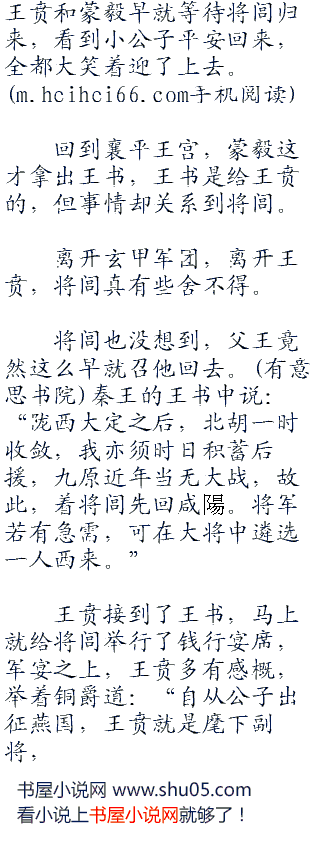 王贲和蒙毅早就等待将闾归
来，看到小公子平安回来，
全都大笑着迎了上去。
(m.hcihci66.com手机阅读)
回到襄平王宫，蒙毅这
才拿出王书，王书是给王贲
的，但事情却关系到将闾。
离开玄甲军团，离开王
贲，将闾真有些舍不得。
将闾也没想到，父王竟
然这么早就召他回去。(有意
思书院)秦王的王书中说：
“陇西大定之后，北胡一时
收敛，我亦须时日积蓄后
援，九原近年当无大战，故
此，着将闾先回咸陽。将军
若有急需，可在大将中遴选
一人西来。”
王贲接到了王书，马上
就给将闾举行了钱行宴席，
军宴之上，王贲多有感概，
举着铜爵道：“自从公子出
征燕国，王贲就是麾下副
将，
书屋小说网 www.shu05.com
看小说上书屋小说网就够了！